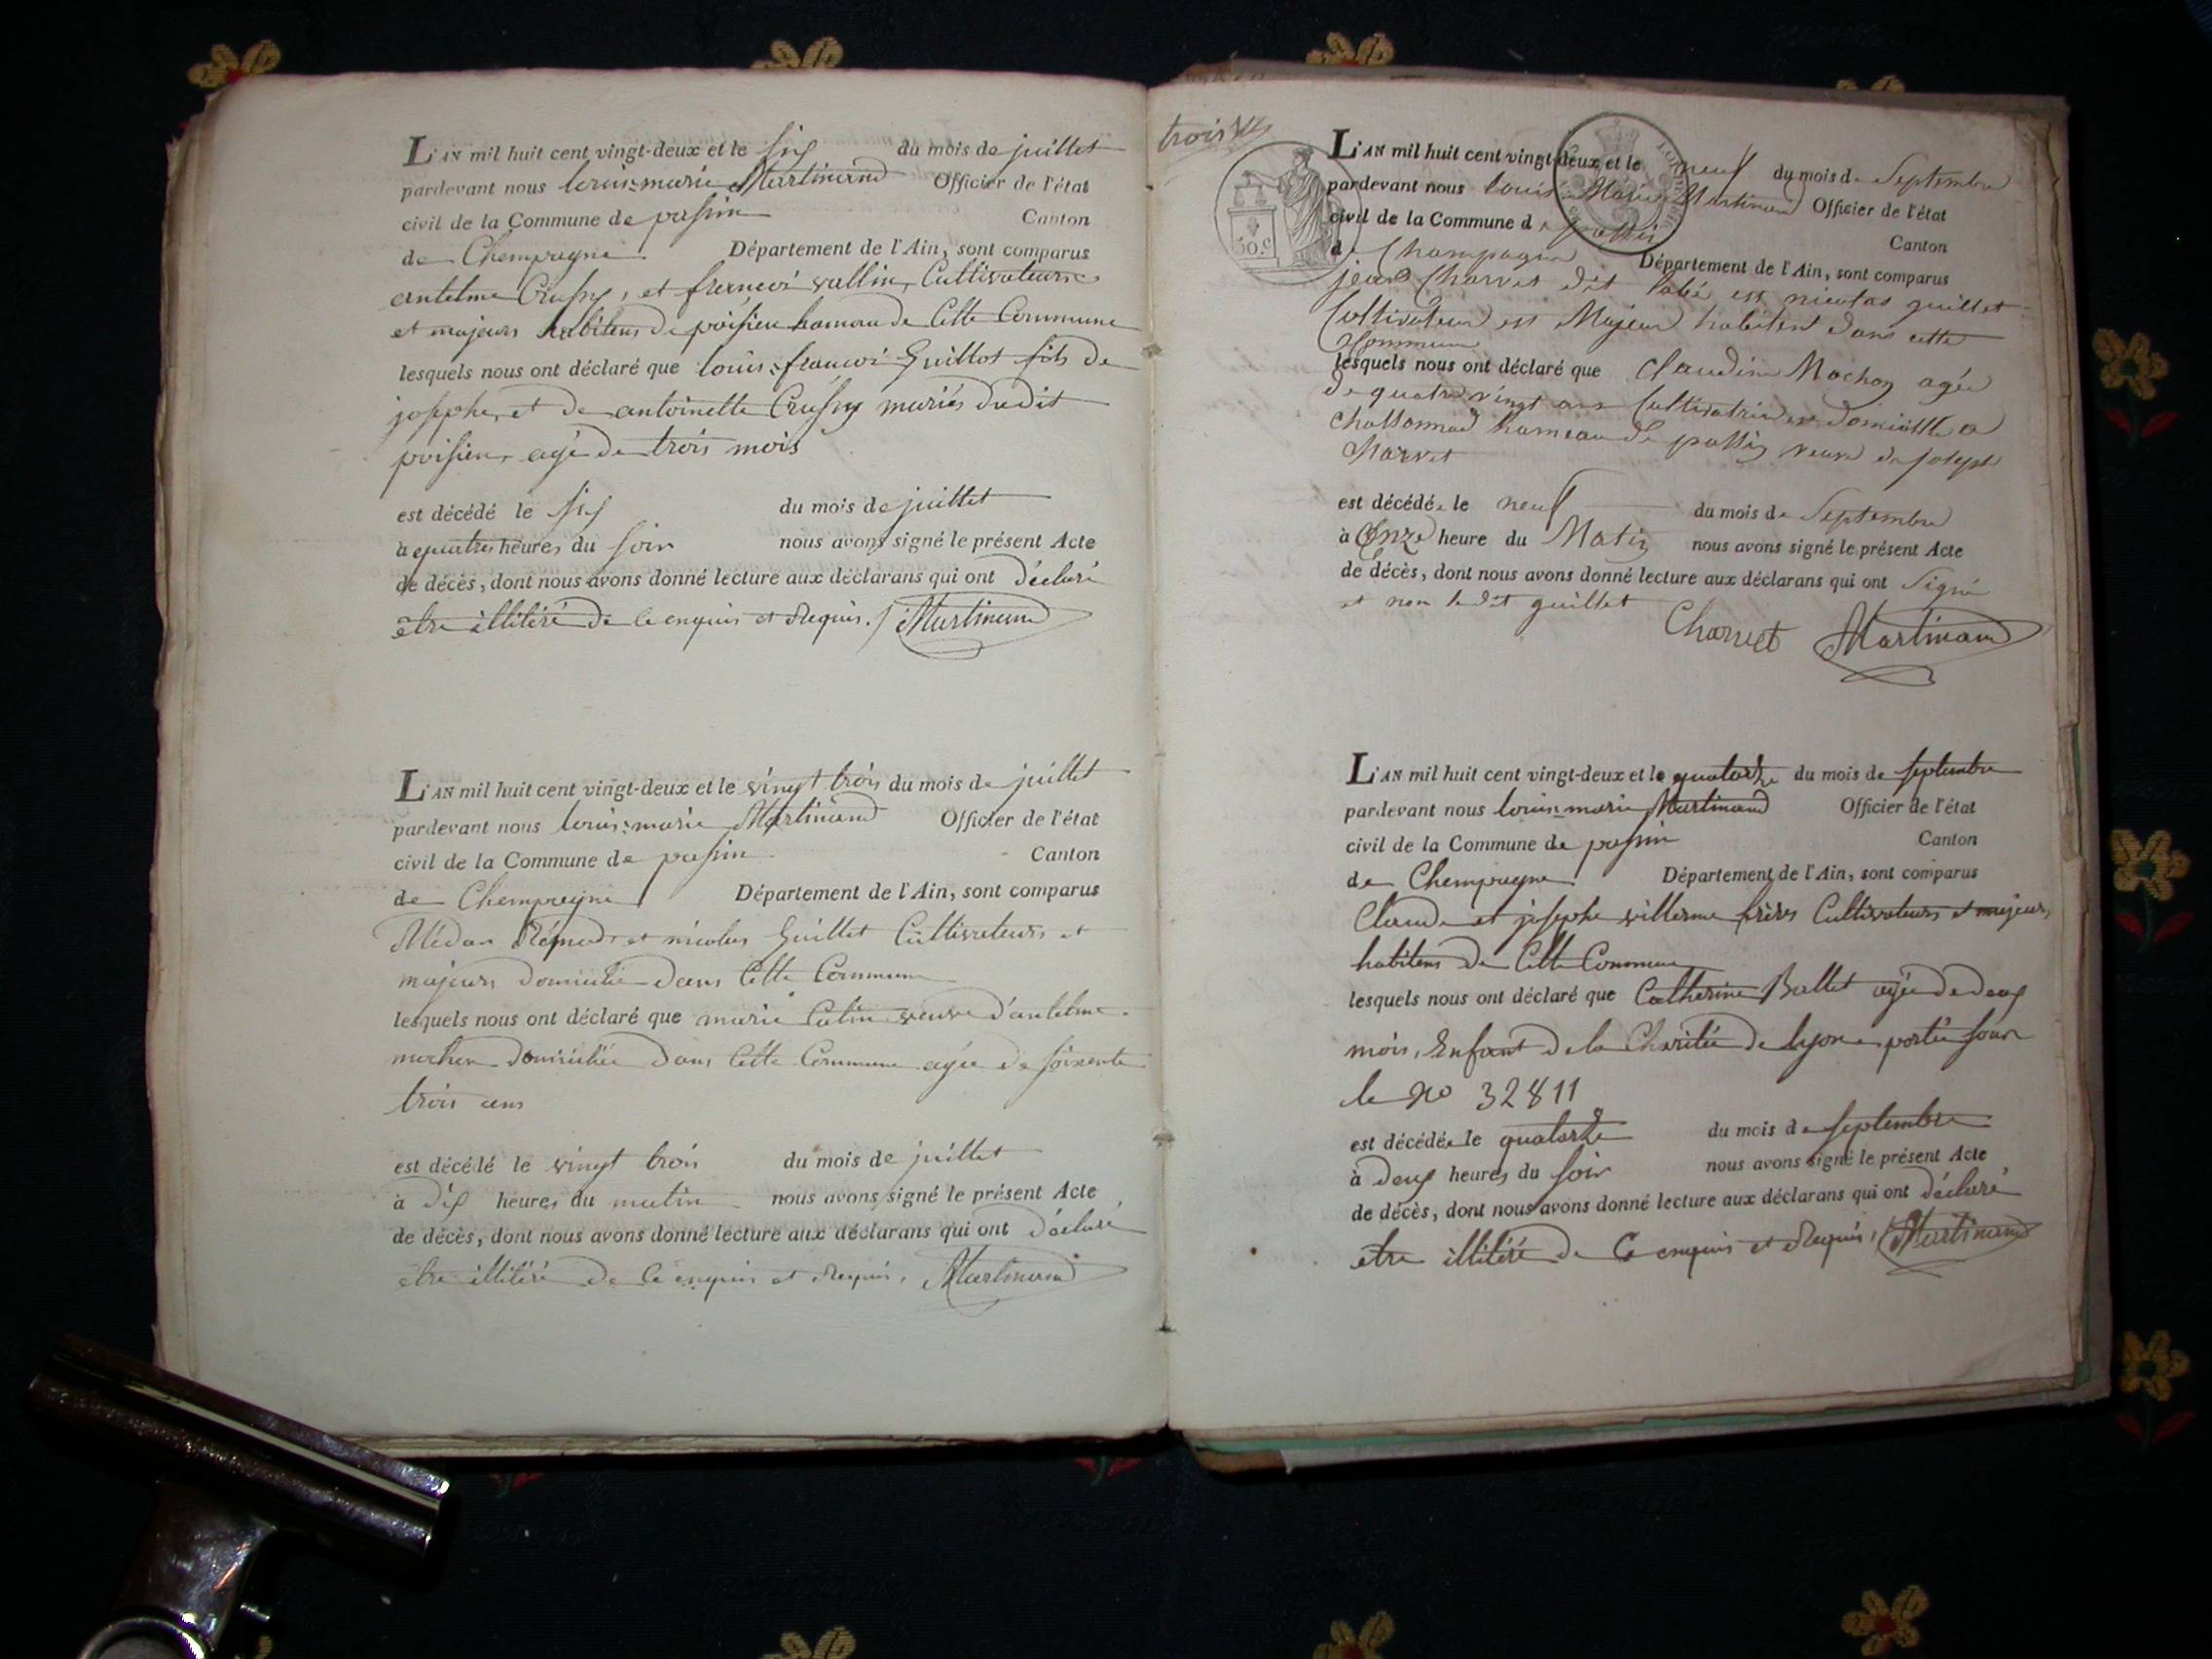 L'AN mil huit cent vingt-deux et le six du mois de juillet
pardevant nous louis-marie Martinand Officier de l'état
civil de la Commune de passin Canton
de Champagne Département de l'Ain, sont comparus
antelme et francoi vallin, Cultivateurs
et majeurs habitens de poisieu hamau de Cette Commune
lesquels nous ont déclaré que louis-francoi Guillot fils de
josephe, et de antoinette mariés dudit
poisieu, agé de trois mois
est décédé le six du mois de juillet
à quatres heures du soir nous avons signé le présent Acte
de décès, dont nous avons donné lecture aux déclarans qui ont déclaré
etre illitéré de Ce enquis et Requis. Martinand
L'AN mil huit cent vingt-deux et le vingt trois du mois de juillet
pardevant nous louis-marie Martinand Officier de l'état
civil de la Commune de passin Canton
de Champagne Département de l'Ain, sont comparus
et nicolas Guillet Cultivateurs et
majeurs domicilié dans Cette Commune
lesquels nous ont déclaré que marie veuve d'antelme
mochon domiciliée dans Cette Commune agée de soixente
trois ans
est décédé le vingt trois du mois de juillet
à dix heures du matin nous avons signé le présent Acte
de décès, dont nous avons donné lecture aux déclarans qui ont déclaré
etre illitéré de Ce enquis et Requis, Martinand
trois
50.c
L'AN mil huit cent vingt-deux et le neuf du mois de Septembre
pardevant nous louis Marie Martinand Officier de l'état
civil de la Commune de Canton
de Champagne Département de l'Ain, sont comparus
jean Charvet dit et nicolas guillet
Cultivateur est Majeur habitent dans cette
Commune
lesquels nous ont déclaré que Claudine Mochon agée
de quatre vingt ans Cultivatrice domicille a
hameau de passin veuve de joseph
Charvet
est décédée le neuf du mois de Septembre
à Onze heure du Matin nous avons signé le présent Acte
de décès, dont nous avons donné lecture aux déclarans qui ont Signé
et non le dit guillet Charvet Martinand
L'AN mil huit cent vingt-deux et le quatorze du mois de septembre
pardevant nous louis-marie Martinand Officier de l'état
civil de la Commune de passin Canton
de Champagne Département de l'Ain, sont comparus
Claude et josephe villerme frères Cultivateurs et majeurs
habitens de Cette Commune
lesquels nous ont déclaré que Catherine Ballet agée de deux
mois, Enfant de la Charitée de lyon portée sour
le No 32811
est décédée le quatorze du mois de septembre
à deux heures du soir nous avons signé le présent Acte
de décès, dont nous avons donné lecture aux déclarans qui ont déclaré
etre illitéré de Ce enquis et Requis, Martinand